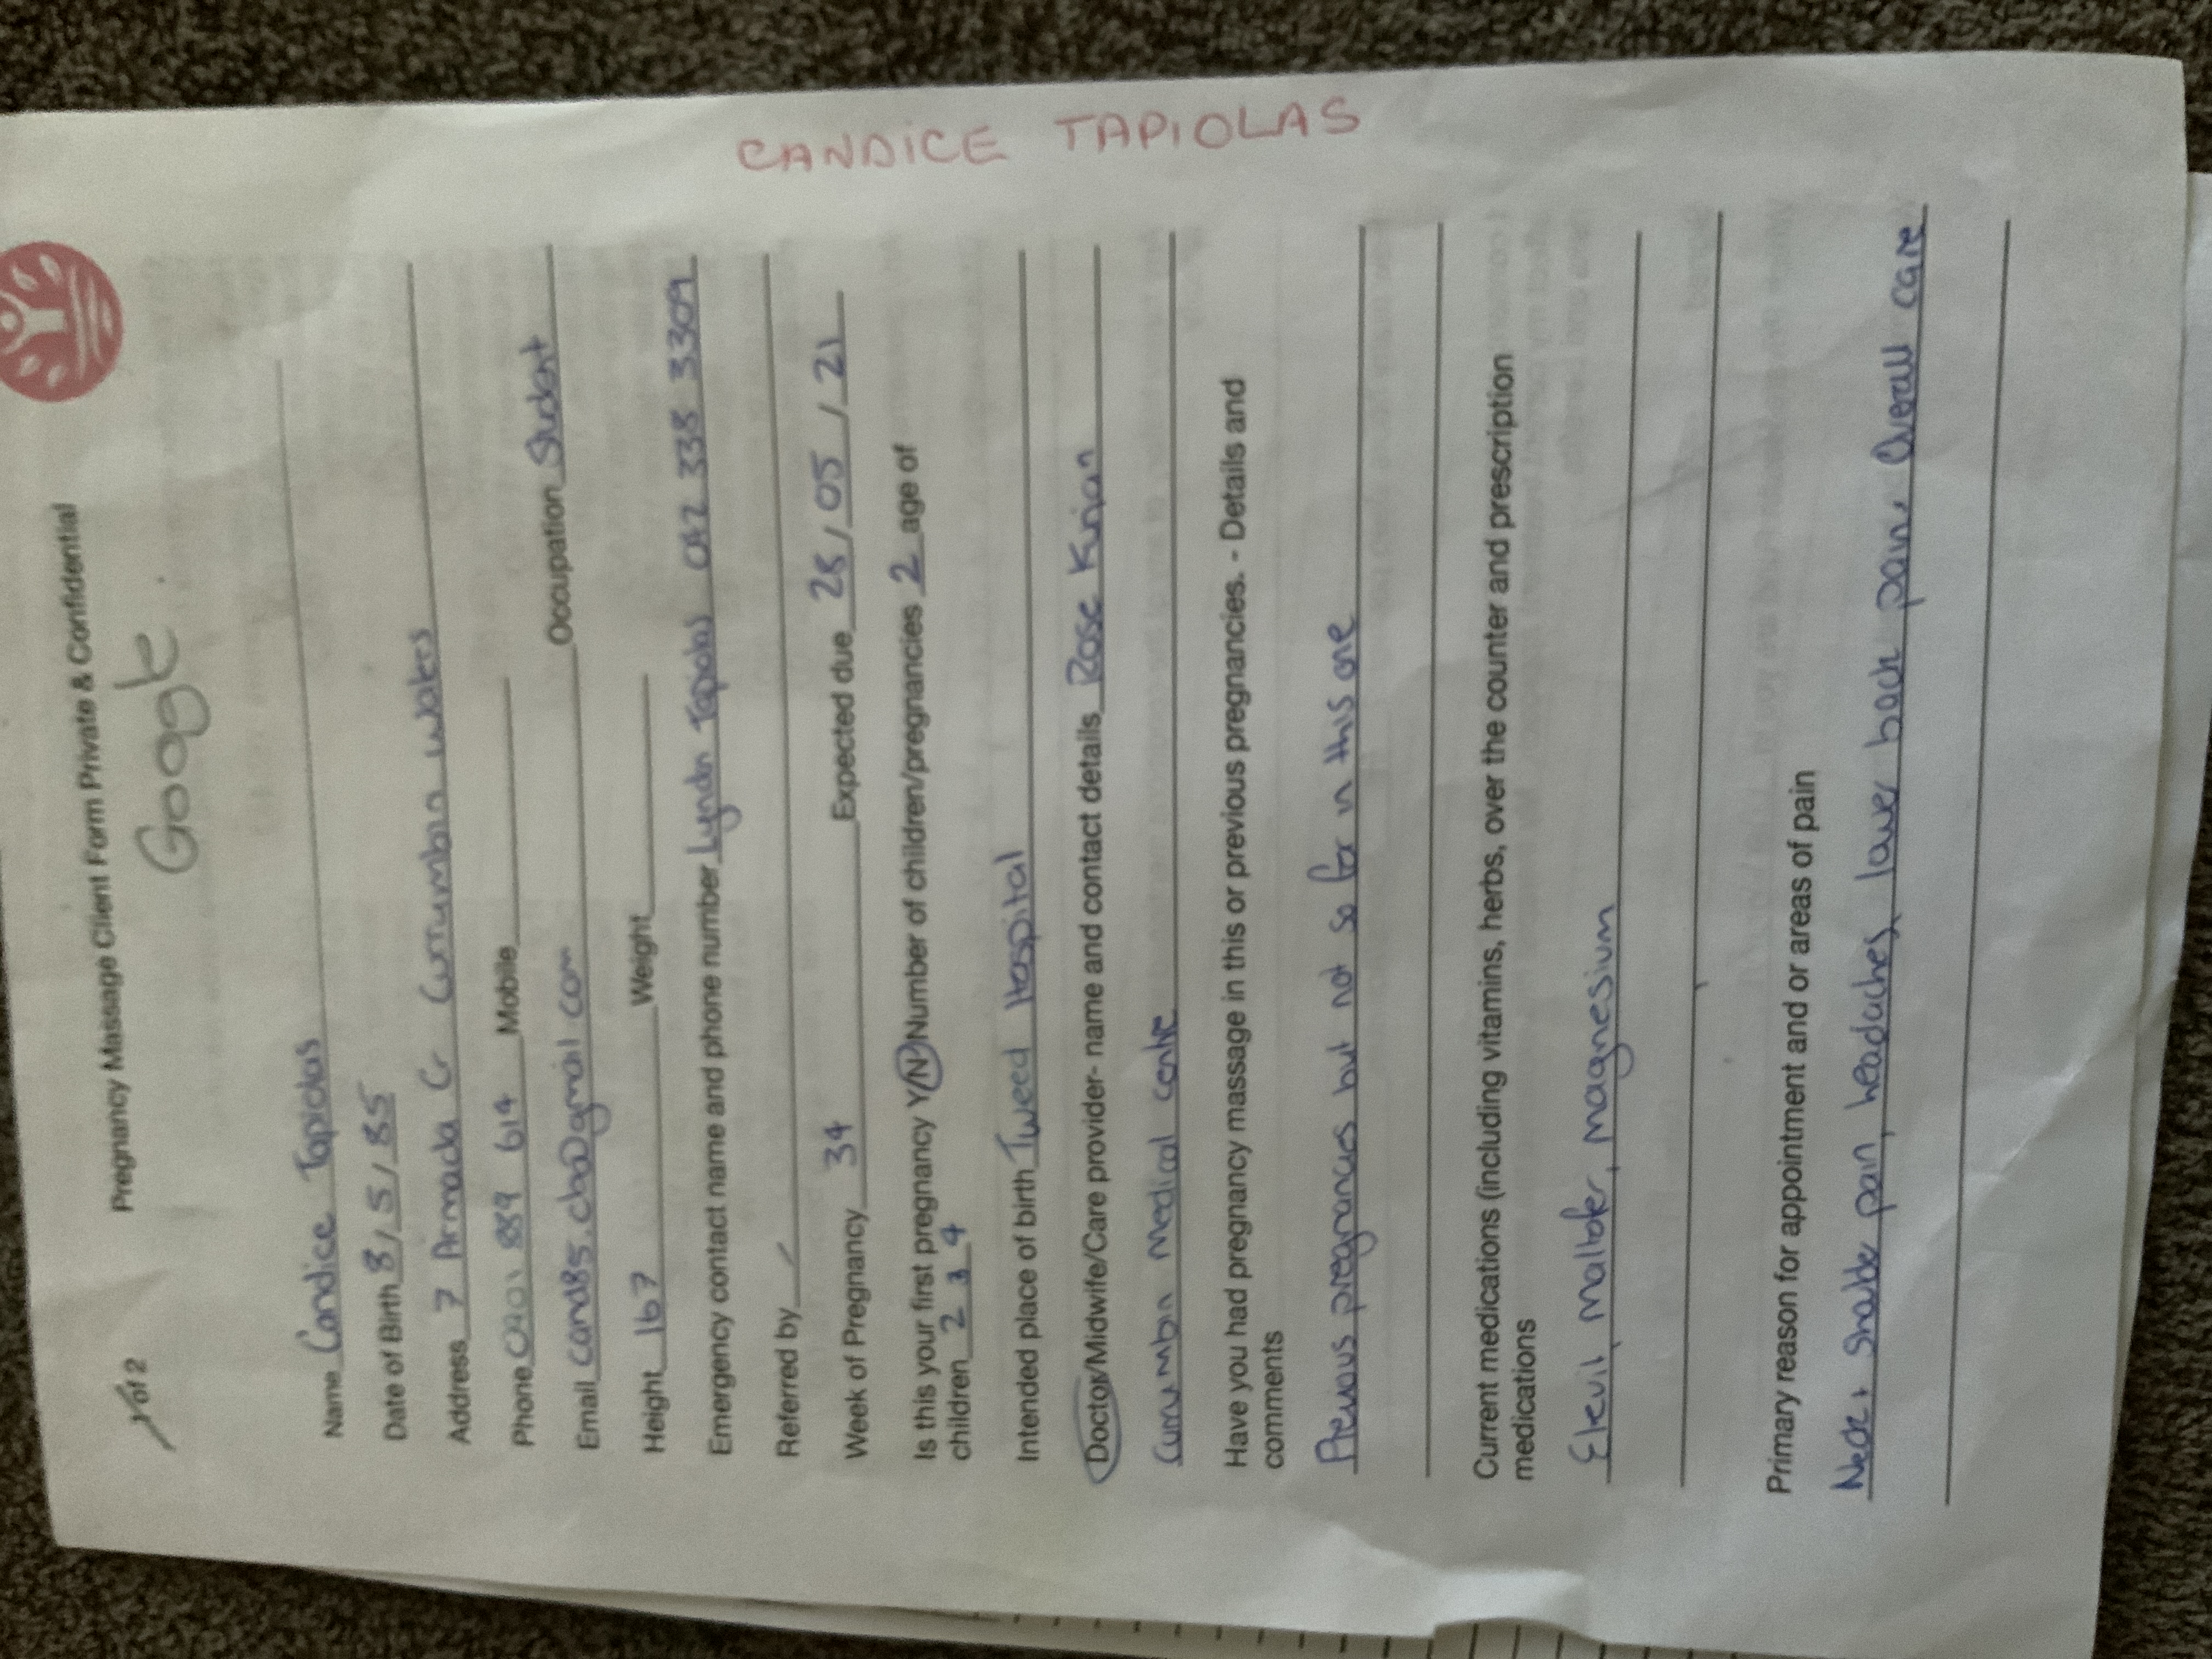 Pregnancy Massage Client Form Private & Confidential
1 of 2
Google
CANDICE TAPIOLAS
Name Candice Tapiolas
Date of Birth 8 / 5 / 85
Address 7 Armada Cr Currumbin waters
Phone 0401 889 614 Mobile
Email cand85.cba@gmail.com Occupation Student
Height 167 Weight
Emergency contact name and phone number Lyndn Tapiolas 042 338 3309
Referred by /
Week of Pregnancy 34 Expected due 28 / 05 / 21
Is this your first pregnancy Y/N Number of children/pregnancies 2 age of
children 2 3 4
Intended place of birth Tweed Hospital
Doctor/Midwife/Care provider- name and contact details Rose Kurian
Currumbin medical centre
Have you had pregnancy massage in this or previous pregnancies. - Details and
comments
Previous pregnancies but not so far in this one
Current medications (including vitamins, herbs, over the counter and prescription
medications
Elevit, maltofer, magnesium
Primary reason for appointment and or areas of pain
Neck + shoulder pain, headaches, lower back pain, Overall care